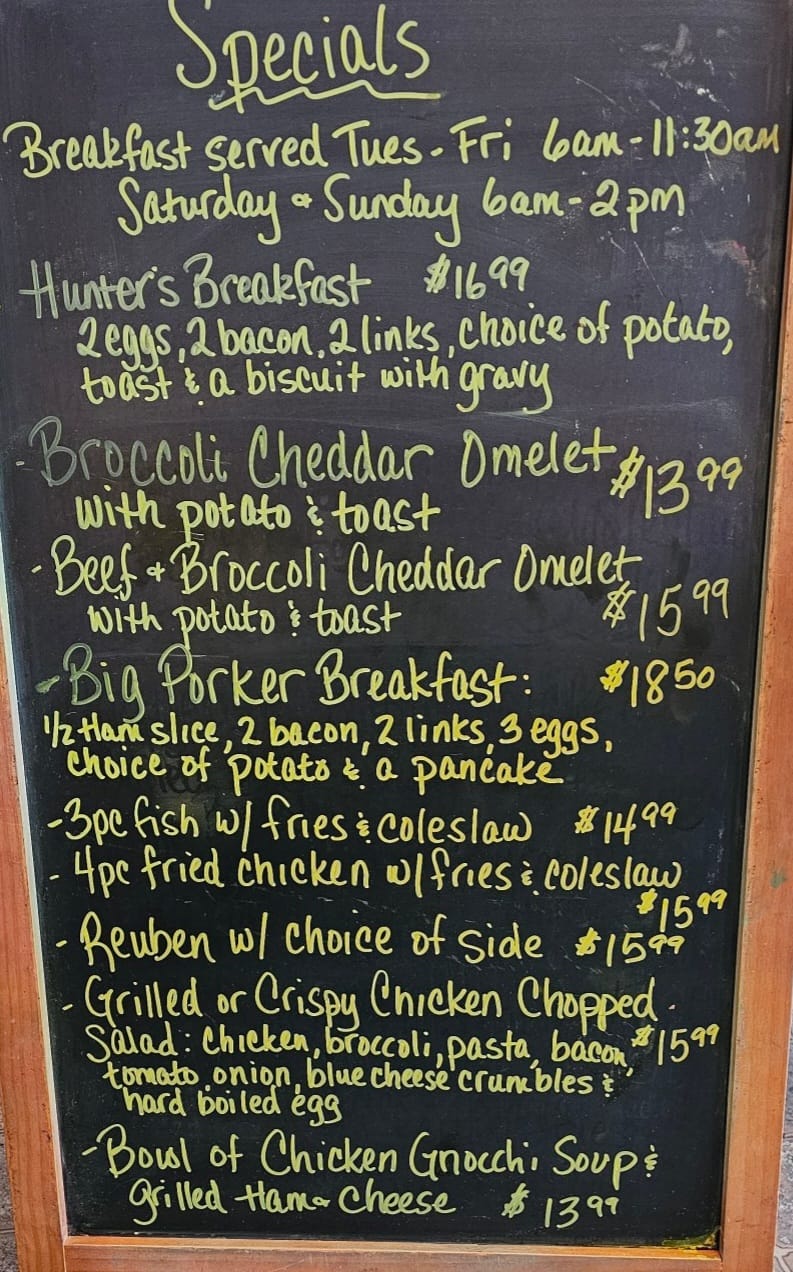 Specials
Breakfast served Tues - Fri 6am - 11:30am
Saturday & Sunday 6am - 2pm
Hunter's Breakfast $16.99
2 eggs, 2 bacon, 2 links, choice of potato,
toast & a biscuit with gravy
- Broccoli Cheddar Omelet $13.99
with potato & toast
- Beef & Broccoli Cheddar Omelet
with potato & toast $15.99
- Big Porker Breakfast: $18.50
1/2 Ham slice, 2 bacon, 2 links, 3 eggs,
choice of potato & a pancake
- 3pc fish w/ fries & coleslaw $14.99
- 4pc fried chicken w/ fries & coleslaw
$15.99
- Reuben w/ choice of side $15.99
- Grilled or Crispy Chicken Chopped
Salad: chicken, broccoli, pasta, bacon, $15.99
tomato, onion, blue cheese crumbles &
hard boiled egg
- Bowl of Chicken Gnocchi Soup &
grilled Ham & Cheese $13.99